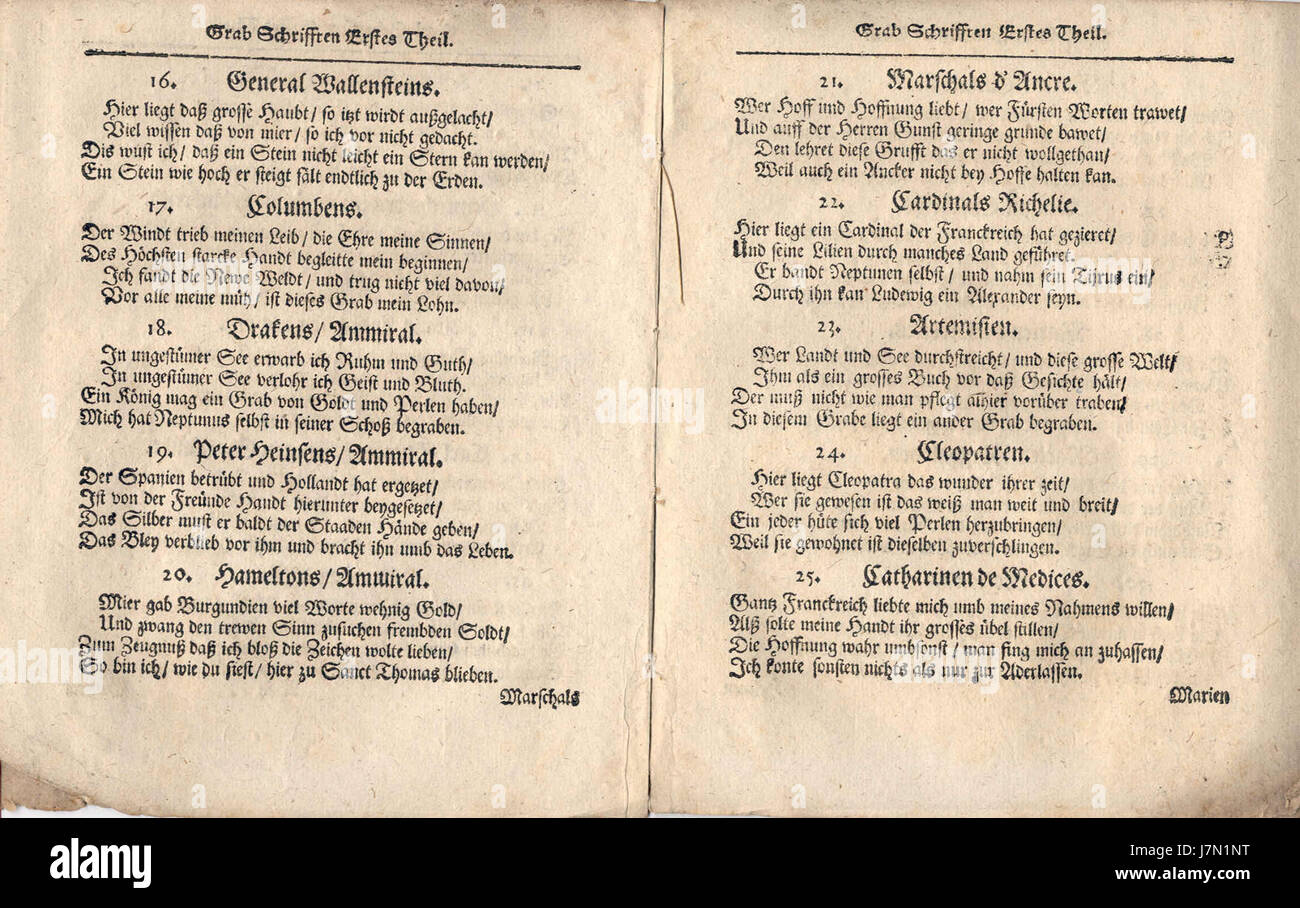 Grab Schrifften Erstes Theil.
16. General Wallensteins.
Hier liegt daß grosse Haubt/ so itzt wirdt außgelacht/
Viel wissen daß von mier/ so ich vor nicht gedacht.
Dis wust ich/ daß ein Stein nicht leicht ein Stern kan werden/
Ein Stein wie hoch er steigt fält endtlich zu der Erden.
17. Columbens.
Der Windt trieb meinen Leib/ die Ehre meine Sinnen/
Des Höchsten starcke Handt begleitte mein beginnen/
Ich fandt die Newe Weldt/ und trug nicht viel davon/
Vor alle meine müh/ ist dieses Grab mein Lohn.
18. Drakens/ Ammiral.
In ungestümer See erwarb ich Ruhm und Guth/
In ungestümer See verlohr ich Geist und Bluth.
Ein König mag ein Grab von Goldt und Perlen haben/
Mich hat Neptunus selbst in seiner Schoß begraben.
19. Peter Heinsens/ Ammiral.
Der Spanien betrübt und Hollandt hat ergetzet/
Ist von der Freünde Handt hierunter beygesetzet/
Das Silber must er baldt der Staaden Hände geben/
Das Bley verblieb vor ihm und bracht ihn umb das Leben.
20. Hameltons/ Ammiral.
Mier gab Burgundien viel Worte wehnig Gold/
Und zwang den trewen Sinn zusuchen frembden Soldt/
Zum Zeugnuß daß ich bloß die Zeichen wolte lieben/
So bin ich/ wie du siest/ hier zu Sanct Thomas blieben.
Marschals
Grab Schrifften Erstes Theil.
21. Marschals d' Ancre.
Wer Hoff und Hoffnung liebt/ wer Fürsten Worten trawet/
Und auff der Herren Gunst geringe grunde bawet/
Den lehret diese Grufft das er nicht wollgethan/
Weil auch ein Ancker nicht bey Hoffe halten kan.
22. Cardinals Richelie.
Hier liegt ein Cardinal der Franckreich hat gezieret/
Und seine Lilien durch manches Land geführet.
Er bandt Neptunen selbst/ und nahm sein Tyrus ein/
Durch ihn kan Ludewig ein Alexander seyn.
23. Artemisien.
Wer Landt und See durchstreicht/ und diese grosse Welt/
Ihm als ein grosses Buch vor daß Gesichte hält/
Der muß nicht wie man pflegt alhier vorüber traben/
In diesem Grabe liegt ein ander Grab begraben.
24. Cleopatren.
Hier liegt Cleopatra das wunder ihrer zeit/
Wer sie gewesen ist das weiß man weit und breit/
Ein jeder hüte sich viel Perlen herzubringen/
Weil sie gewohnet ist dieselben zuverschlingen.
25. Catharinen de Medices.
Gantz Franckreich liebte mich umb meines Nahmens willen/
Alß solte meine Handt ihr grosses übel stillen/
Die Hoffnung wahr umbsonst/ man fing mich an zuhassen/
Ich konte sonsten nichts als nur zur Aderlassen.
Marien
alamy
Image ID: J7N1NT
www.alamy.com